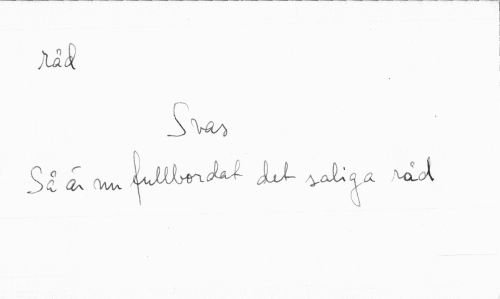 råd
Svas
Så är nu fullbordat det saliga råd